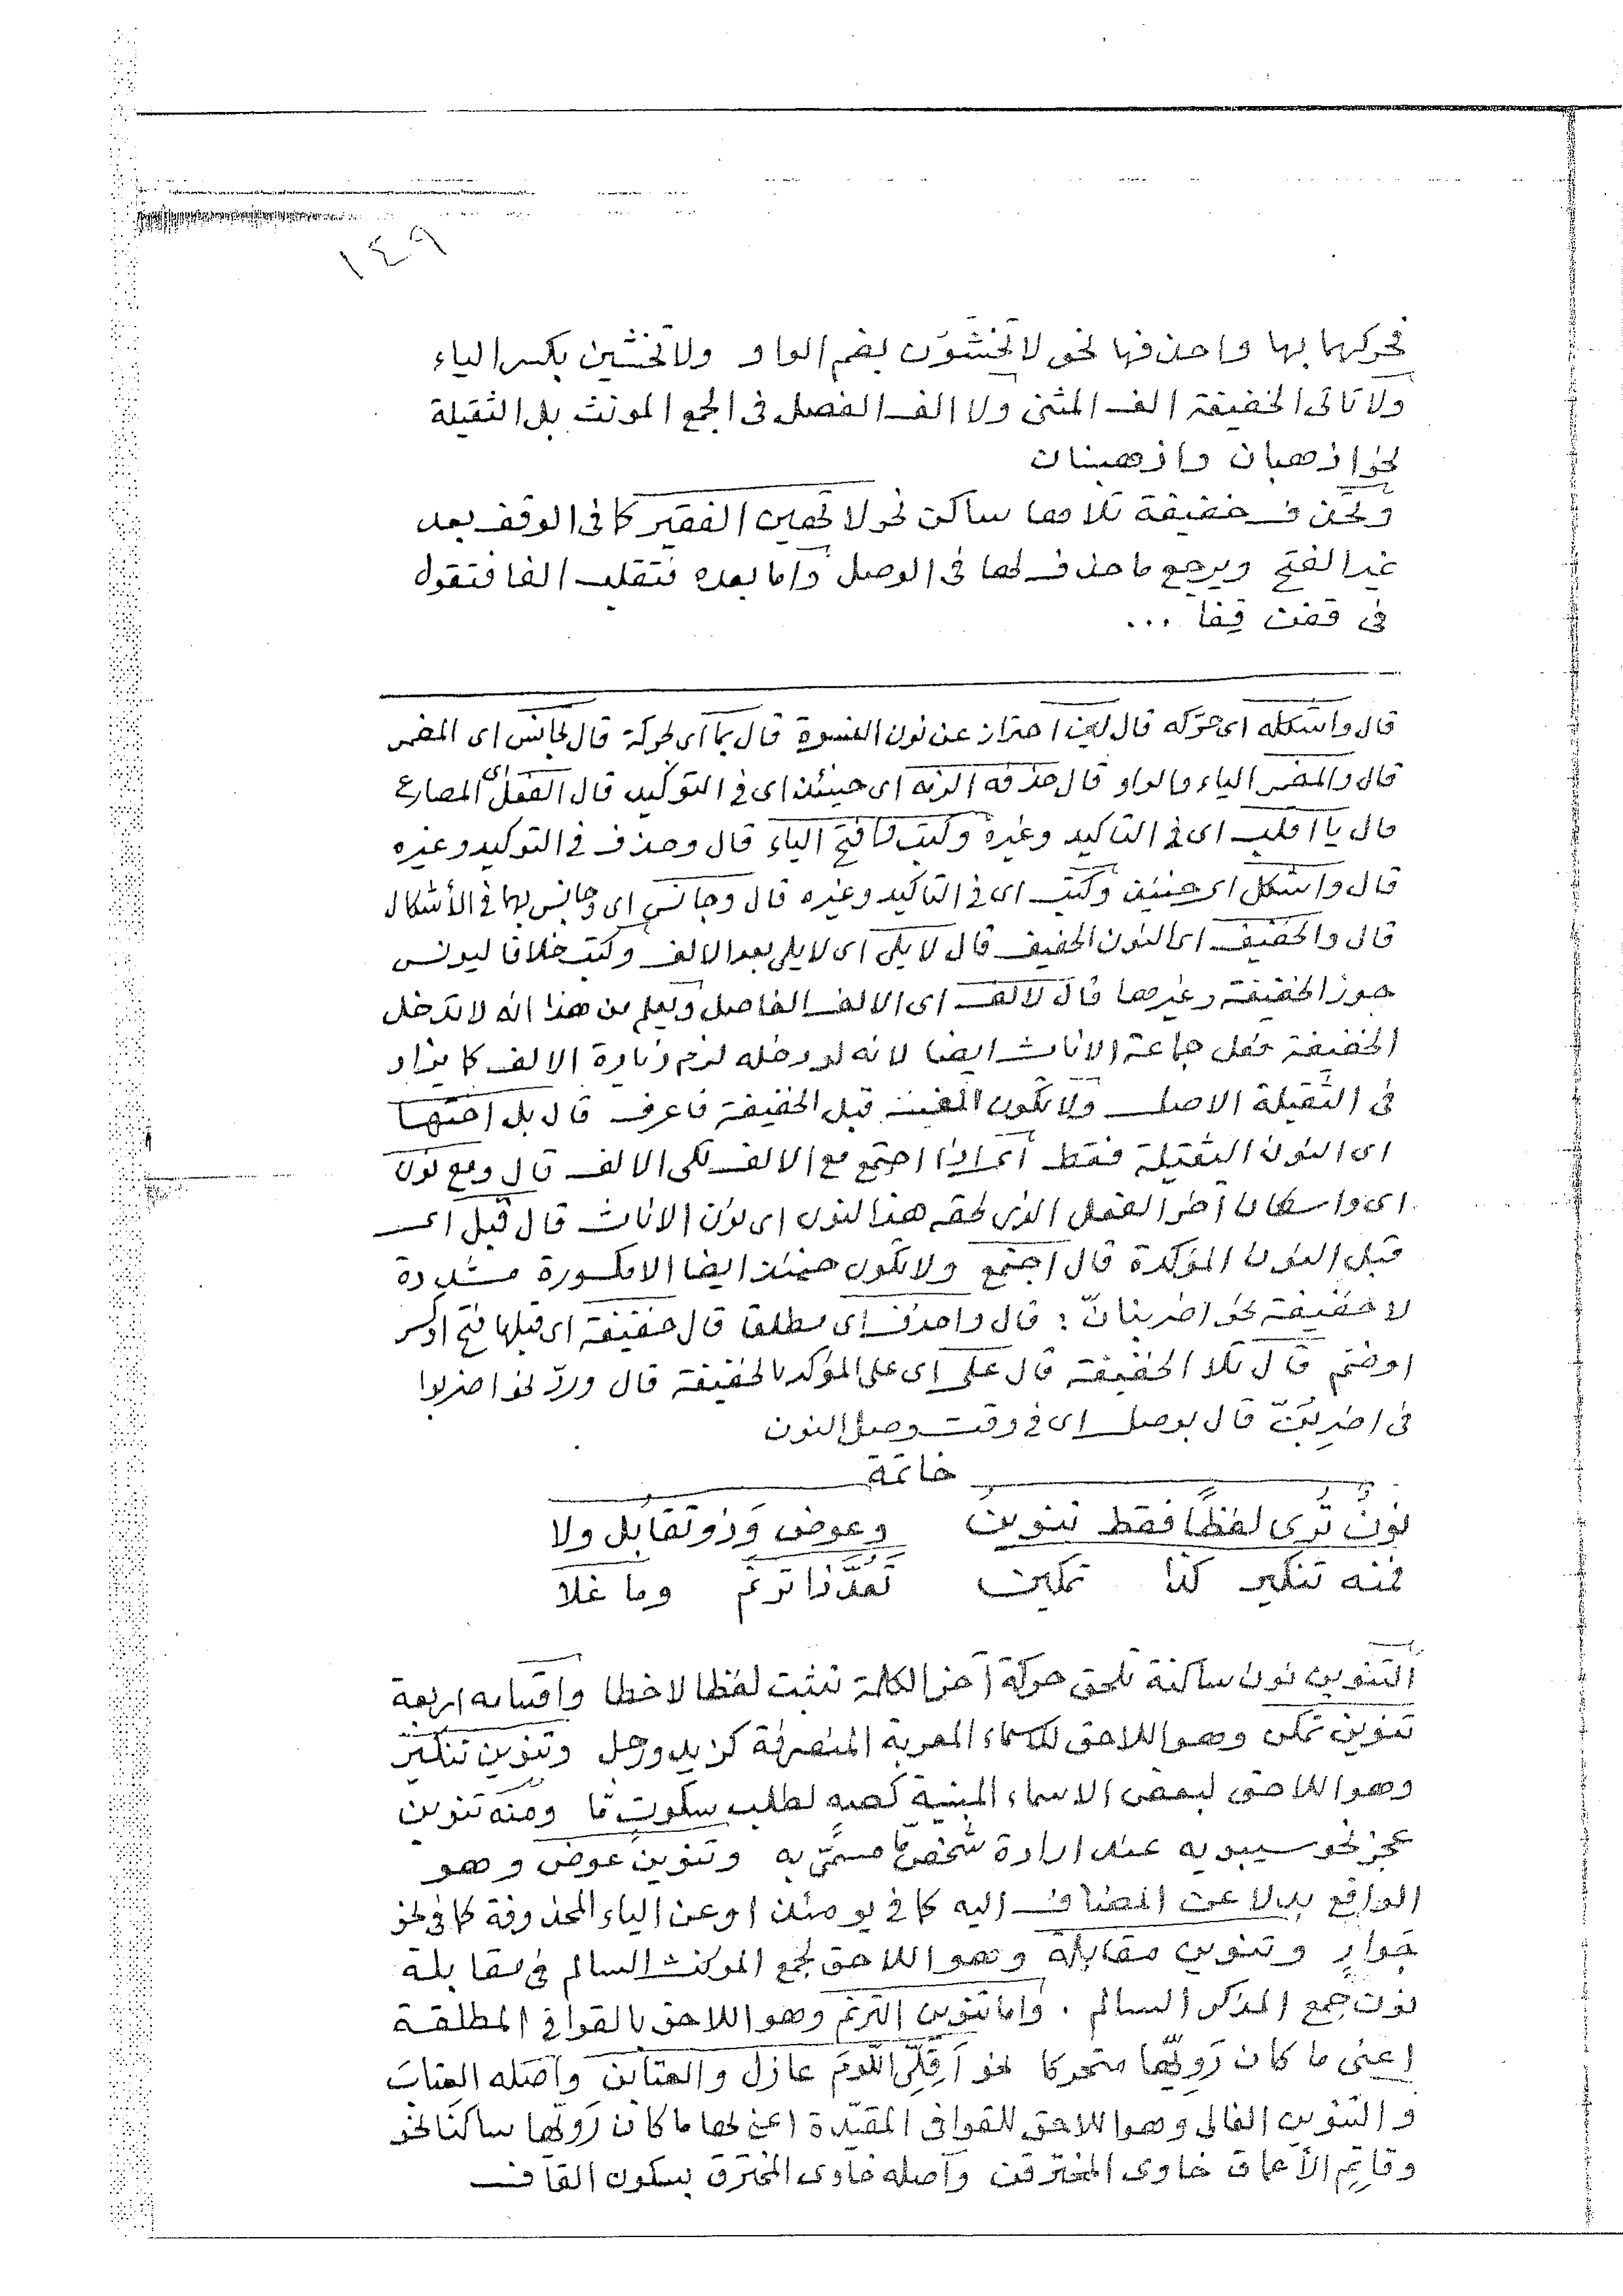 ١٤٩
فحركهما بها واحذفها نحو لا تخشَوُن بضم الواو ولا تخشَيِن بكسر الياء
ولا تأتى الخفيفة الف المثنى ولا الف الفصل فى الجمع المونث بل الثقيلة
نحو اذهبان واذهبنان
وتحذف خفيفة تلاها ساكن نحو لا تهين الفقير كما فى الوقف بعد
غير الفتح ويرجع ما حذف لها فى الوصل واما بعده فتقلب الفا فتقول
فى قفن قِفا ...
قال واشكله اى حرّكه قال لين احتراز عن نون النسوة قال بما اى بحركة قال جانس اى المضمر
قال والمضمر الياء والواو قال حذفه الزنه اى حينئذ اى فى التوكيد قال الفعل اى المضارع
قال يا اقلب اى فى التاكيد وغيره وكتب فافتح الياء قال وحذف فى التوكيد وغيره
قال واشكل اى حينئذ وكتب اى فى التاكيد وغيره قال وجانس اى وجانس بهما فى الأشكال
قال والخفيف اى النون الخفيف قال لا يلى اى لا يلى بعد الالف وكتب خلافا ليونس
جوز الخفيفة وغيرها قال لالف اى الالف الفاصل ويعلم من هذا انه لا تدخل
الخفيفة فعل جماعة الاناث ايضا لانه لو دخله لزم زيادة الالف كما يزاد
فى الثقيلة الاصل ولا تكون قبل الخفيفة فاعرف قال بل اختها
اى النون الثقيلة فقط اى اذا اجتمع مع الالف تلى الالف قال ومع نون
اى واسكان آخر الفعل الذى لحقه هذا النون اى نون الاناث قال قبل اى
قبل النون المؤكدة قال اجتمع ولا تكون حينئذ ايضا الا مكسورة مشددة
لا خفيفة نحو اضربنانّ : قال واحذف اى مطلقا قال خفيفة اى قبلها فتح او كسر
او ضم قال تلا الخفيفة قال على اى على المؤكد بالخفيفة قال وردّ نحو اضربوا
فى اضربُنّ قال بوصل اى فى وقت وصل النون
خاتمة
نونٌ تُرى لفظًا فقط تنوين وعوض وَذو تقابُل ولا
فمنه تنكير كذا تمكين تَعُدَّ ذا ترنّم وما غلا
التنوين نون ساكنة تلحق حركة آخر الكلمة تثبت لفظا لا خطا واقسامه اربعة
تنوين تمكن وهو اللاحق للاسماء المعربة المنصرفة كزيد ورجل وتنوين تنكير
وهو اللاحق لبعض الاسماء المبنية كصهٍ لطلب سكوتٍ مّا ومنه تنوين
عجز نحو سيبويه عند ارادة شخص مّا مسمّى به وتنوين عوض وهو
الواقع بدلا عن المضاف اليه كما فى يومئذ او عن الياء المحذوفة كما فى نحو
جَوارٍ وتنوين مقابلة وهو اللاحق لجمع المونث السالم فى مقابلة
نون جمع المذكر السالم . واما تنوين الترنم وهو اللاحق بالقوافى المطلقة
اعنى ما كان رَويّها متحركا نحو اَقِلّى اللّومَ عاذل والعتابن واصله العتابَ
والتنوين الغالى وهو اللاحق للقوافى المقيّدة اعنى لها ما كان رَويّها ساكنا نحو
وقاتِمِ الأعماق خاوى المخترقن واصله خاوى المخترق بسكون القاف